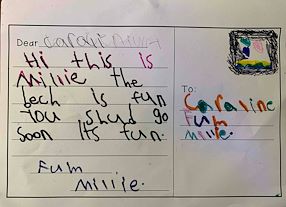 Dear
Hi this is
Millie the
bech is fun
You shud go
Soon Its fun.
Fum
Millie.
To:
Caraline
Fum
Millie.